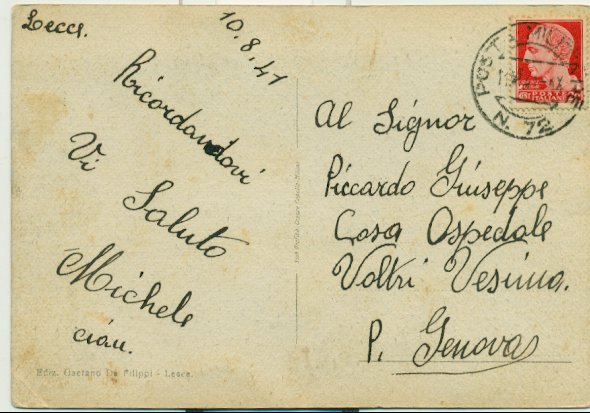 Lecce.
10.8.41
Ricordandovi
Vi
Saluto
Michele
ciau.
Ediz. Gaetano De Filippi - Lecce.
POSTA MILITARE
N. 72
POSTE
ITALIANE
Al Signor
Piccardo Giuseppe
Casa Ospedale
Voltri Vesima.
P. Genova